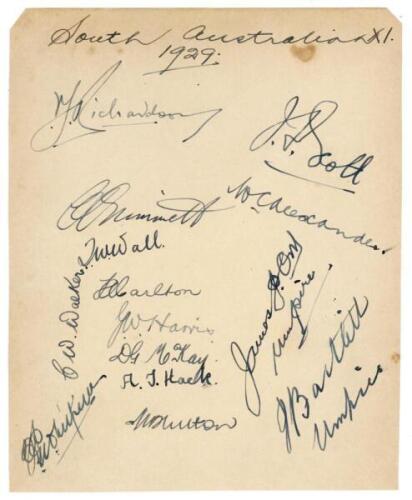 South Australian XI.
1929.
V. Richardson
J. D. Scott
W. C. Alexander
C V Grimmett
T W Wall
C. W. Walker
T Carlton
G W Harris
D G McKay.
A. T. Hack.
M Hutton
James J Orr
Umpire
J Bartlett
Umpire